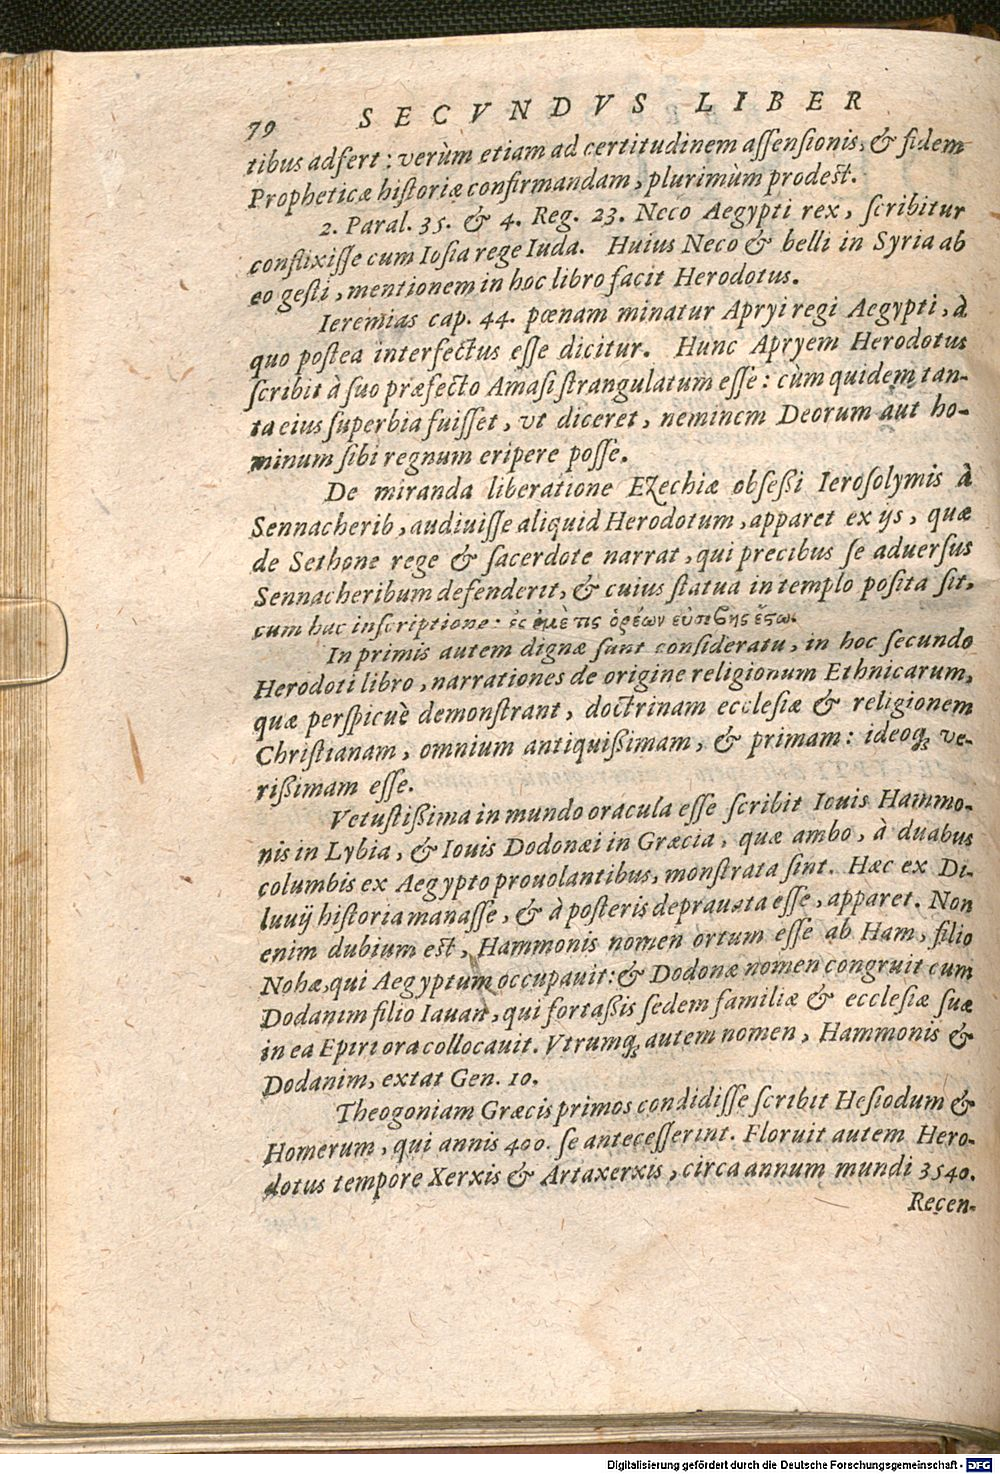 79 SECVNDVS LIBER
tibus adfert: verùm etiam ad certitudinem aſſenſionis, & fidem
Propheticæ hiſtoriæ confirmandam, plurimùm prodeſt.
2. Paral. 35. & 4. Reg. 23. Neco Aegypti rex, ſcribitur
conflixiſſe cum Ioſia rege Iuda. Huius Neco & belli in Syria ab
eo geſti, mentionem in hoc libro facit Herodotus.
Ieremias cap. 44. pœnam minatur Apryi regi Aegypti, à
quo poſtea interfectus eſſe dicitur. Hunc Apryem Herodotus
ſcribit à ſuo præfecto Amaſi ſtrangulatum eſſe: cùm quidem tan-
ta eius ſuperbia fuiſſet, vt diceret, neminem Deorum aut ho-
minum ſibi regnum eripere poſſe.
De miranda liberatione Ezechiæ obſeßi Ieroſolymis à
Sennacherib, audiuiſſe aliquid Herodotum, apparet ex ijs, quæ
de Sethone rege & ſacerdote narrat, qui precibus ſe aduerſus
Sennacheribum defenderit, & cuius ſtatua in templo poſita ſit,
cum hac inſcriptione: ἐς ἐμὲ τὶς ὁρέων εὐσεβης ἔςω.
In primis autem dignæ ſunt conſideratu, in hoc ſecundo
Herodoti libro, narrationes de origine religionum Ethnicarum,
quæ perſpicuè demonſtrant, doctrinam eccleſiæ & religionem
Chriſtianam, omnium antiquißimam, & primam: ideoq; ve-
rißimam eſſe.
Vetuſtißima in mundo oracula eſſe ſcribit Iouis Hammo-
nis in Lybia, & Iouis Dodonæi in Græcia, quæ ambo, à duabus
columbis ex Aegypto prouolantibus, monſtrata ſint. Hæc ex Di-
luuij hiſtoria manaſſe, & à poſteris deprauata eſſe, apparet. Non
enim dubium eſt, Hammonis nomen ortum eſſe ab Ham, filio
Nohæ, qui Aegyptum occupauit: & Dodonæ nomen congruit cum
Dodanim filio Iauan, qui fortaßis ſedem familiæ & eccleſiæ ſuæ
in ea Epiri ora collocauit. Vtrumq; autem nomen, Hammonis &
Dodanim, extat Gen. 10.
Theogoniam Græcis primos condidiſſe ſcribit Heſiodum &
Homerum, qui annis 400. ſe anteceſſerint. Floruit autem Hero-
dotus tempore Xerxis & Artaxerxis, circa annum mundi 3540.
Recen-
Digitalisierung gefördert durch die Deutsche Forschungsgemeinschaft - DFG